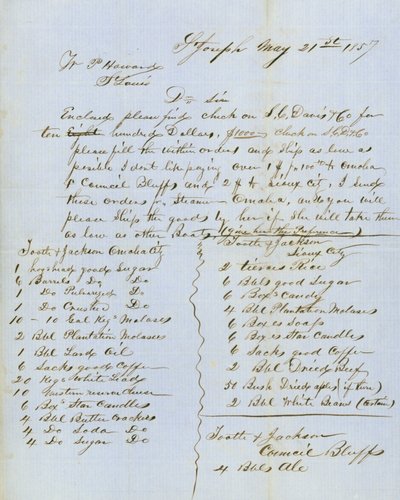 St Joseph May 21st 1857
W P Howard
St Louis
Dr Sir
Enclosed please find check on S. C. Davis & Co for
ten Eight hundred Dollars, $1000 check on S C D & Co
please fill the within orders and Ship as low as
posible I dont like paying over 1 $ pr 100 to Omaha
& Council Bluffs and 2 $ to Sioux City, I send
these orders pr Steamer Omaha, and you will
please Ship the goods by her if she will take them
as low as other Boats (give her the Preference)
Tootle & Jackson Omaha City
1 hogshead good Sugar
6 Barrels Do Do
1 Do Pulverized Do
1 Do Crushed Do
10 - 10 Gal Kegs Molases
2 Bbl Plantation Molases
1 Bbl Lard Oil
6 Sacks good Coffee
20 Kegs White Lead
10 Western reserve Cheese
6 Boxs Star Candles
4 Bbl Butter Crackers
4 Do Soda Do
4 Do Sugar Do
Tootle & Jackson
Sioux City
2 tierces Rice
6 Bbls good Sugar
6 Boxs Candy
4 Bbl Plantation Molases
6 Boxes Soap
6 Boxes Star Candles
6 Sacks good Coffee
2 Bbl Dried Beef
Bush Dried apples (if there)
2 Bbl White Beans (certain)
Tootle & Jackson
Council Bluffs
4 Bbls Ale